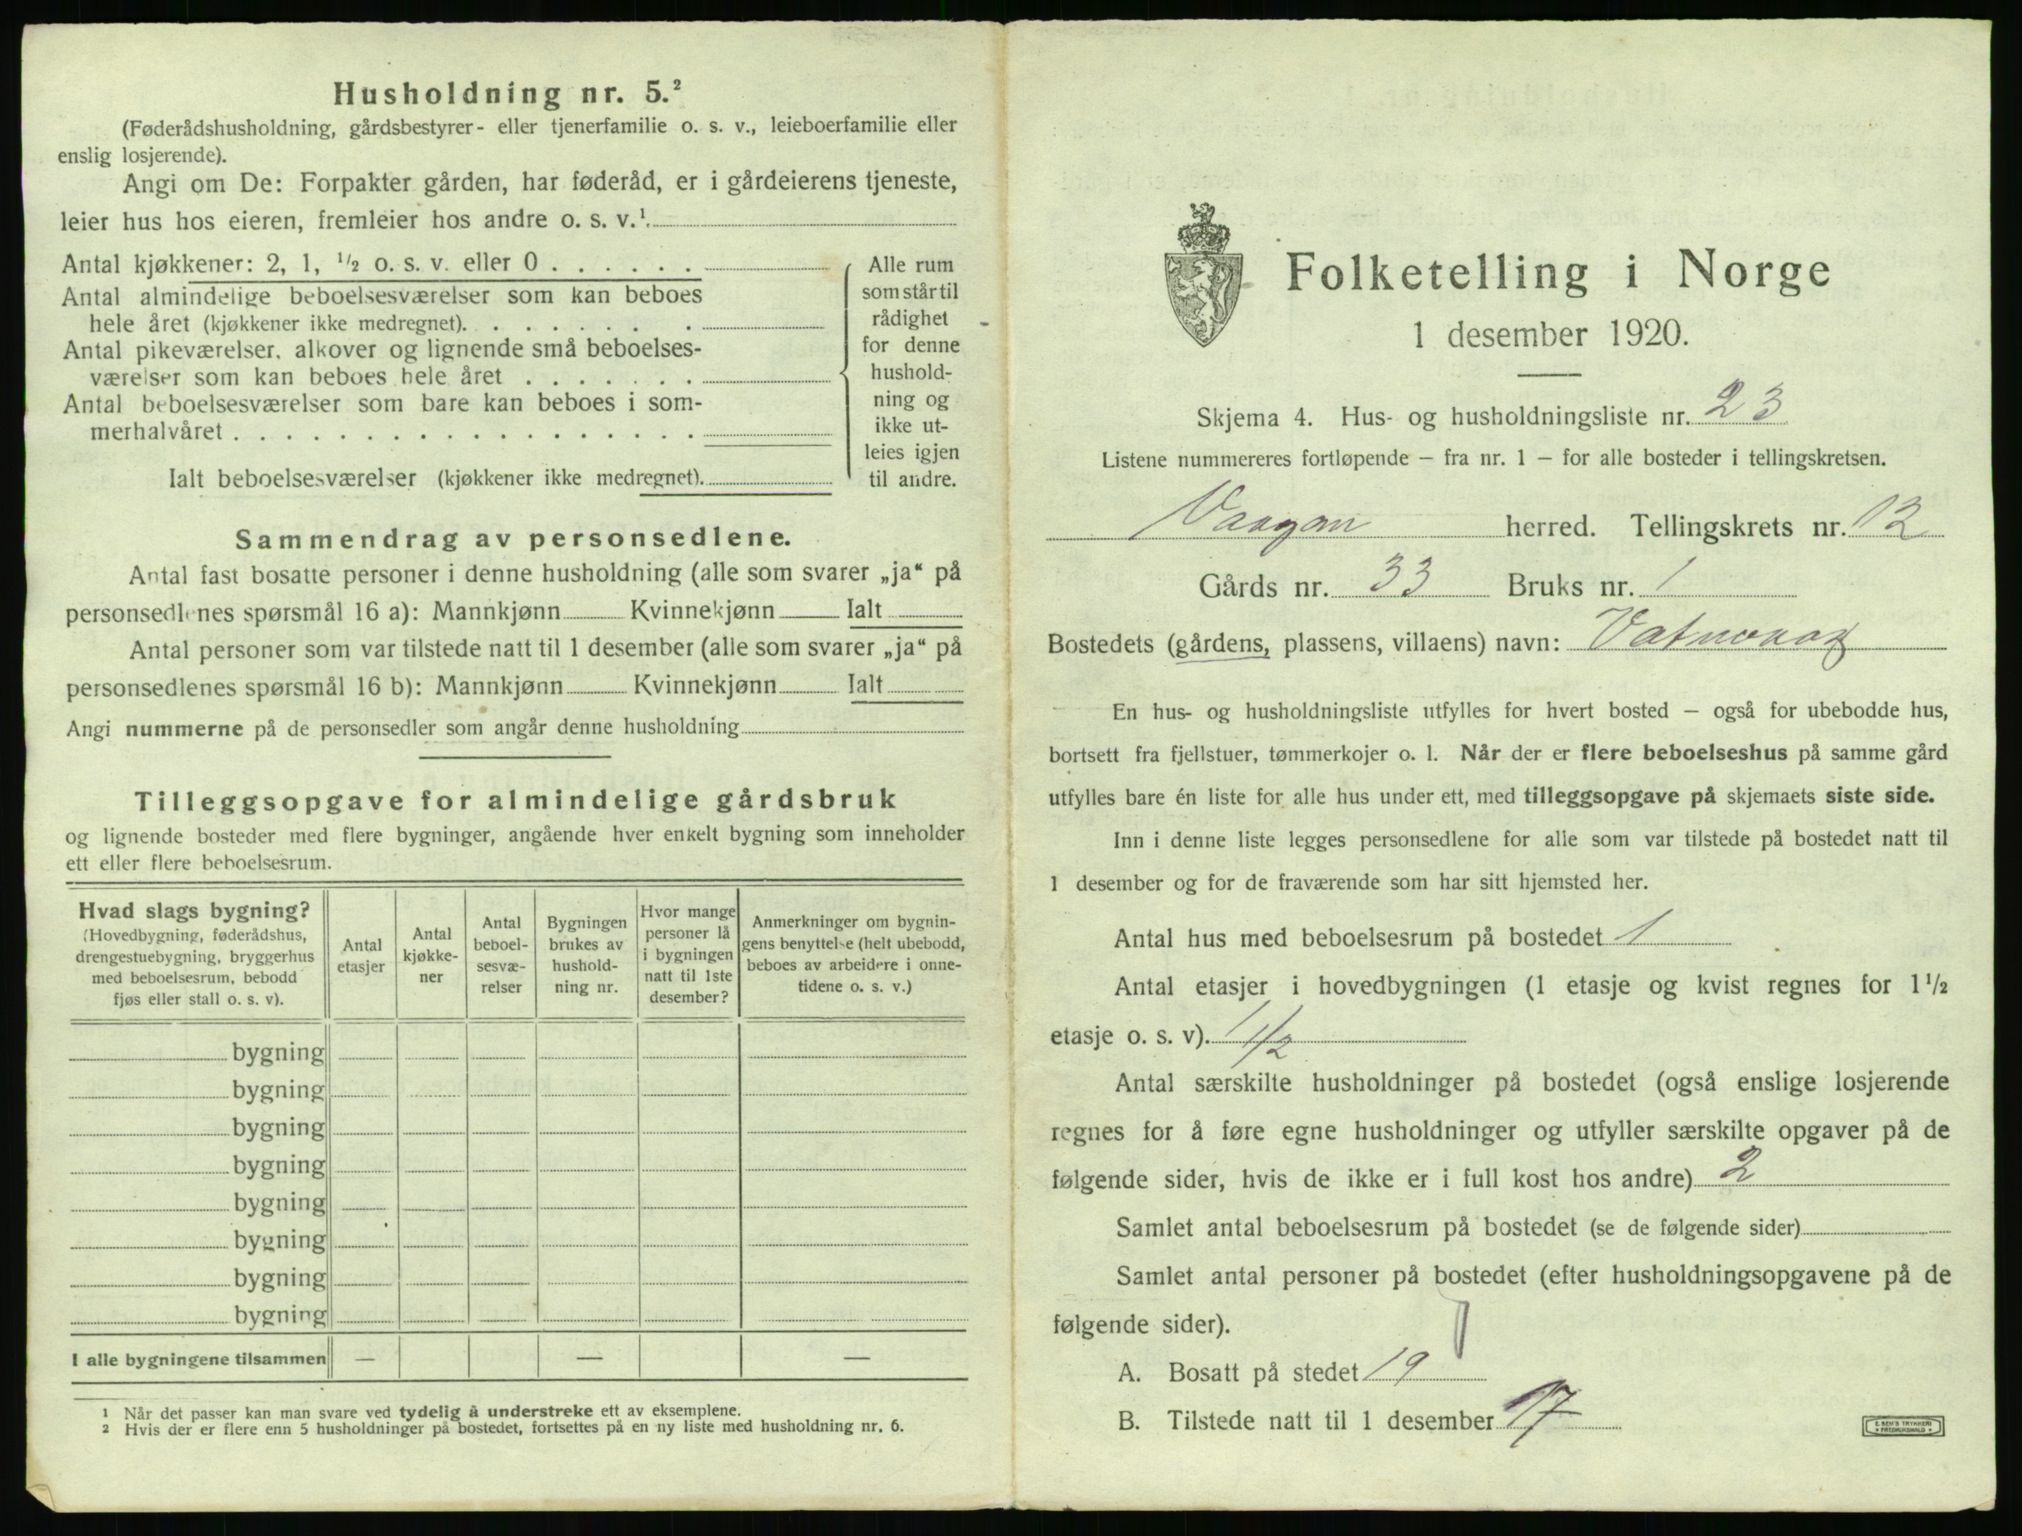 Husholdning nr. 5.²
(Føderådshusholdning, gårdsbestyrer- eller tjenerfamilie o. s. v., leieboerfamilie eller
enslig losjerende).
Angi om De: Forpakter gården, har føderåd, er i gårdeierens tjeneste,
leier hus hos eieren, fremleier hos andre o. s. v.¹.
Antal kjøkkener: 2, 1, ¹/₂ o. s. v. eller 0 . . . . . .
Antal almindelige beboelsesværelser som kan beboes
hele året (kjøkkener ikke medregnet). . . . . . . . .
Antal pikeværelser, alkover og lignende små beboelses-
værelser som kan beboes hele året . . . . . . .
Antal beboelsesværelser som bare kan beboes i som-
merhalvåret . . . . . . . . . . . . . . . . . .
Ialt beboelsesværelser (kjøkkener ikke medregnet).
Alle rum
som står til
rådighet
for denne
hushold-
ning og
ikke ut-
leies igjen
til andre.
Sammendrag av personsedlene.
Antal fast bosatte personer i denne husholdning (alle som svarer „ja“ på
personsedlenes spørsmål 16 a): Mannkjønn Kvinnekjønn Ialt
Antal personer som var tilstede natt til 1 desember (alle som svarer „ja“ på
personsedlenes spørsmål 16 b): Mannkjønn Kvinnekjønn Ialt
Angi nummerne på de personsedler som angår denne husholdning
Tilleggsopgave for almindelige gårdsbruk
og lignende bosteder med flere bygninger, angående hver enkelt bygning som inneholder
ett eller flere beboelsesrum.
Hvad slags bygning?
(Hovedbygning, føderådshus,
drengestuebygning, bryggerhus
med beboelsesrum, bebodd
fjøs eller stall o. s. v).
Antal
etasjer
Antal
kjøkke-
ner
Antal
beboel-
sesvæ-
relser
Bygningen
brukes av
hushold-
ning nr.
Hvor mange
personer lå
i bygningen
natt til 1ste
desember?
Anmerkninger om bygnin-
gens benyttelse (helt ubebodd,
beboes av arbeidere i onne-
tidene o. s. v.)
bygning
bygning
bygning
bygning
bygning
bygning
bygning
bygning
I alle bygningene tilsammen — — —
1 Når det passer kan man svare ved tydelig å understreke ett av eksemplene.
2 Hvis der er flere enn 5 husholdninger på bostedet, fortsettes på en ny liste med husholdning nr. 6.
Folketelling i Norge
1 desember 1920.
Skjema 4. Hus- og husholdningsliste nr. 23
Listene nummereres fortløpende – fra nr. 1 – for alle bosteder i tellingskretsen.
Vaagan herred. Tellingskrets nr. 12
Gårds nr. 33 Bruks nr. 1
Bostedets (gårdens, plassens, villaens) navn:
En hus- og husholdningsliste utfylles for hvert bosted – også for ubebodde hus,
bortsett fra fjellstuer, tømmerkojer o. l. Når der er flere beboelseshus på samme gård
utfylles bare én liste for alle hus under ett, med tilleggsopgave på skjemaets siste side.
Inn i denne liste legges personsedlene for alle som var tilstede på bostedet natt til
1 desember og for de fraværende som har sitt hjemsted her.
Antal hus med beboelsesrum på bostedet 1
Antal etasjer i hovedbygningen (1 etasje og kvist regnes for 1 ¹/₂
etasje o. s. v). 1 1/2
Antal særskilte husholdninger på bostedet (også enslige losjerende
regnes for å føre egne husholdninger og utfyller særskilte opgaver på de
følgende sider, hvis de ikke er i full kost hos andre) 2
Samlet antal beboelsesrum på bostedet (se de følgende sider)
Samlet antal personer på bostedet (efter husholdningsopgavene på de
følgende sider).
A. Bosatt på stedet 19
B. Tilstede natt til 1 desember 17
E. SEM'S TRYKKERI
• FREDRIKSHALD •